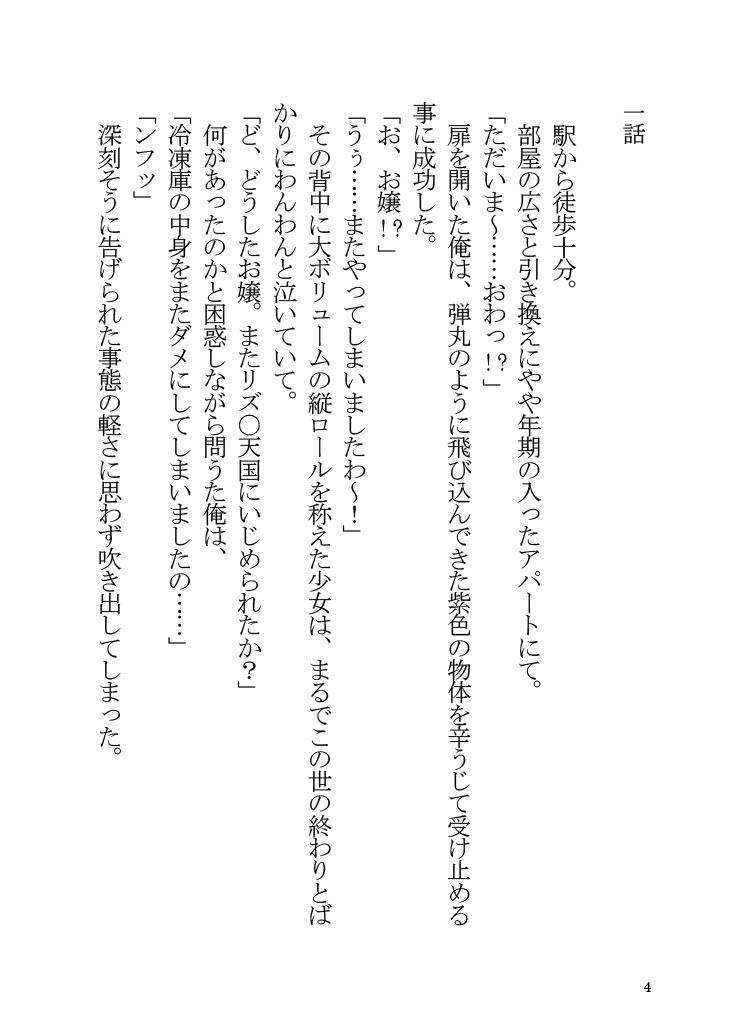 一話
駅から徒歩十分。
部屋の広さと引き換えにやや年期の入ったアパートにて。
「ただいま～……おわっ!?」
扉を開いた俺は、弾丸のように飛び込んできた紫色の物体を辛うじて受け止める
事に成功した。
「お、お嬢!?」
「うぅ……またやってしまいましたわ～！」
その背中に大ボリュームの縦ロールを称えた少女は、まるでこの世の終わりとば
かりにわんわんと泣いていて。
「ど、どうしたお嬢。またリズ〇天国にいじめられたか？」
何があったのかと困惑しながら問うた俺は、
「冷凍庫の中身をまたダメにしてしまいましたの……」
「ンフッ」
深刻そうに告げられた事態の軽さに思わず吹き出してしまった。
4